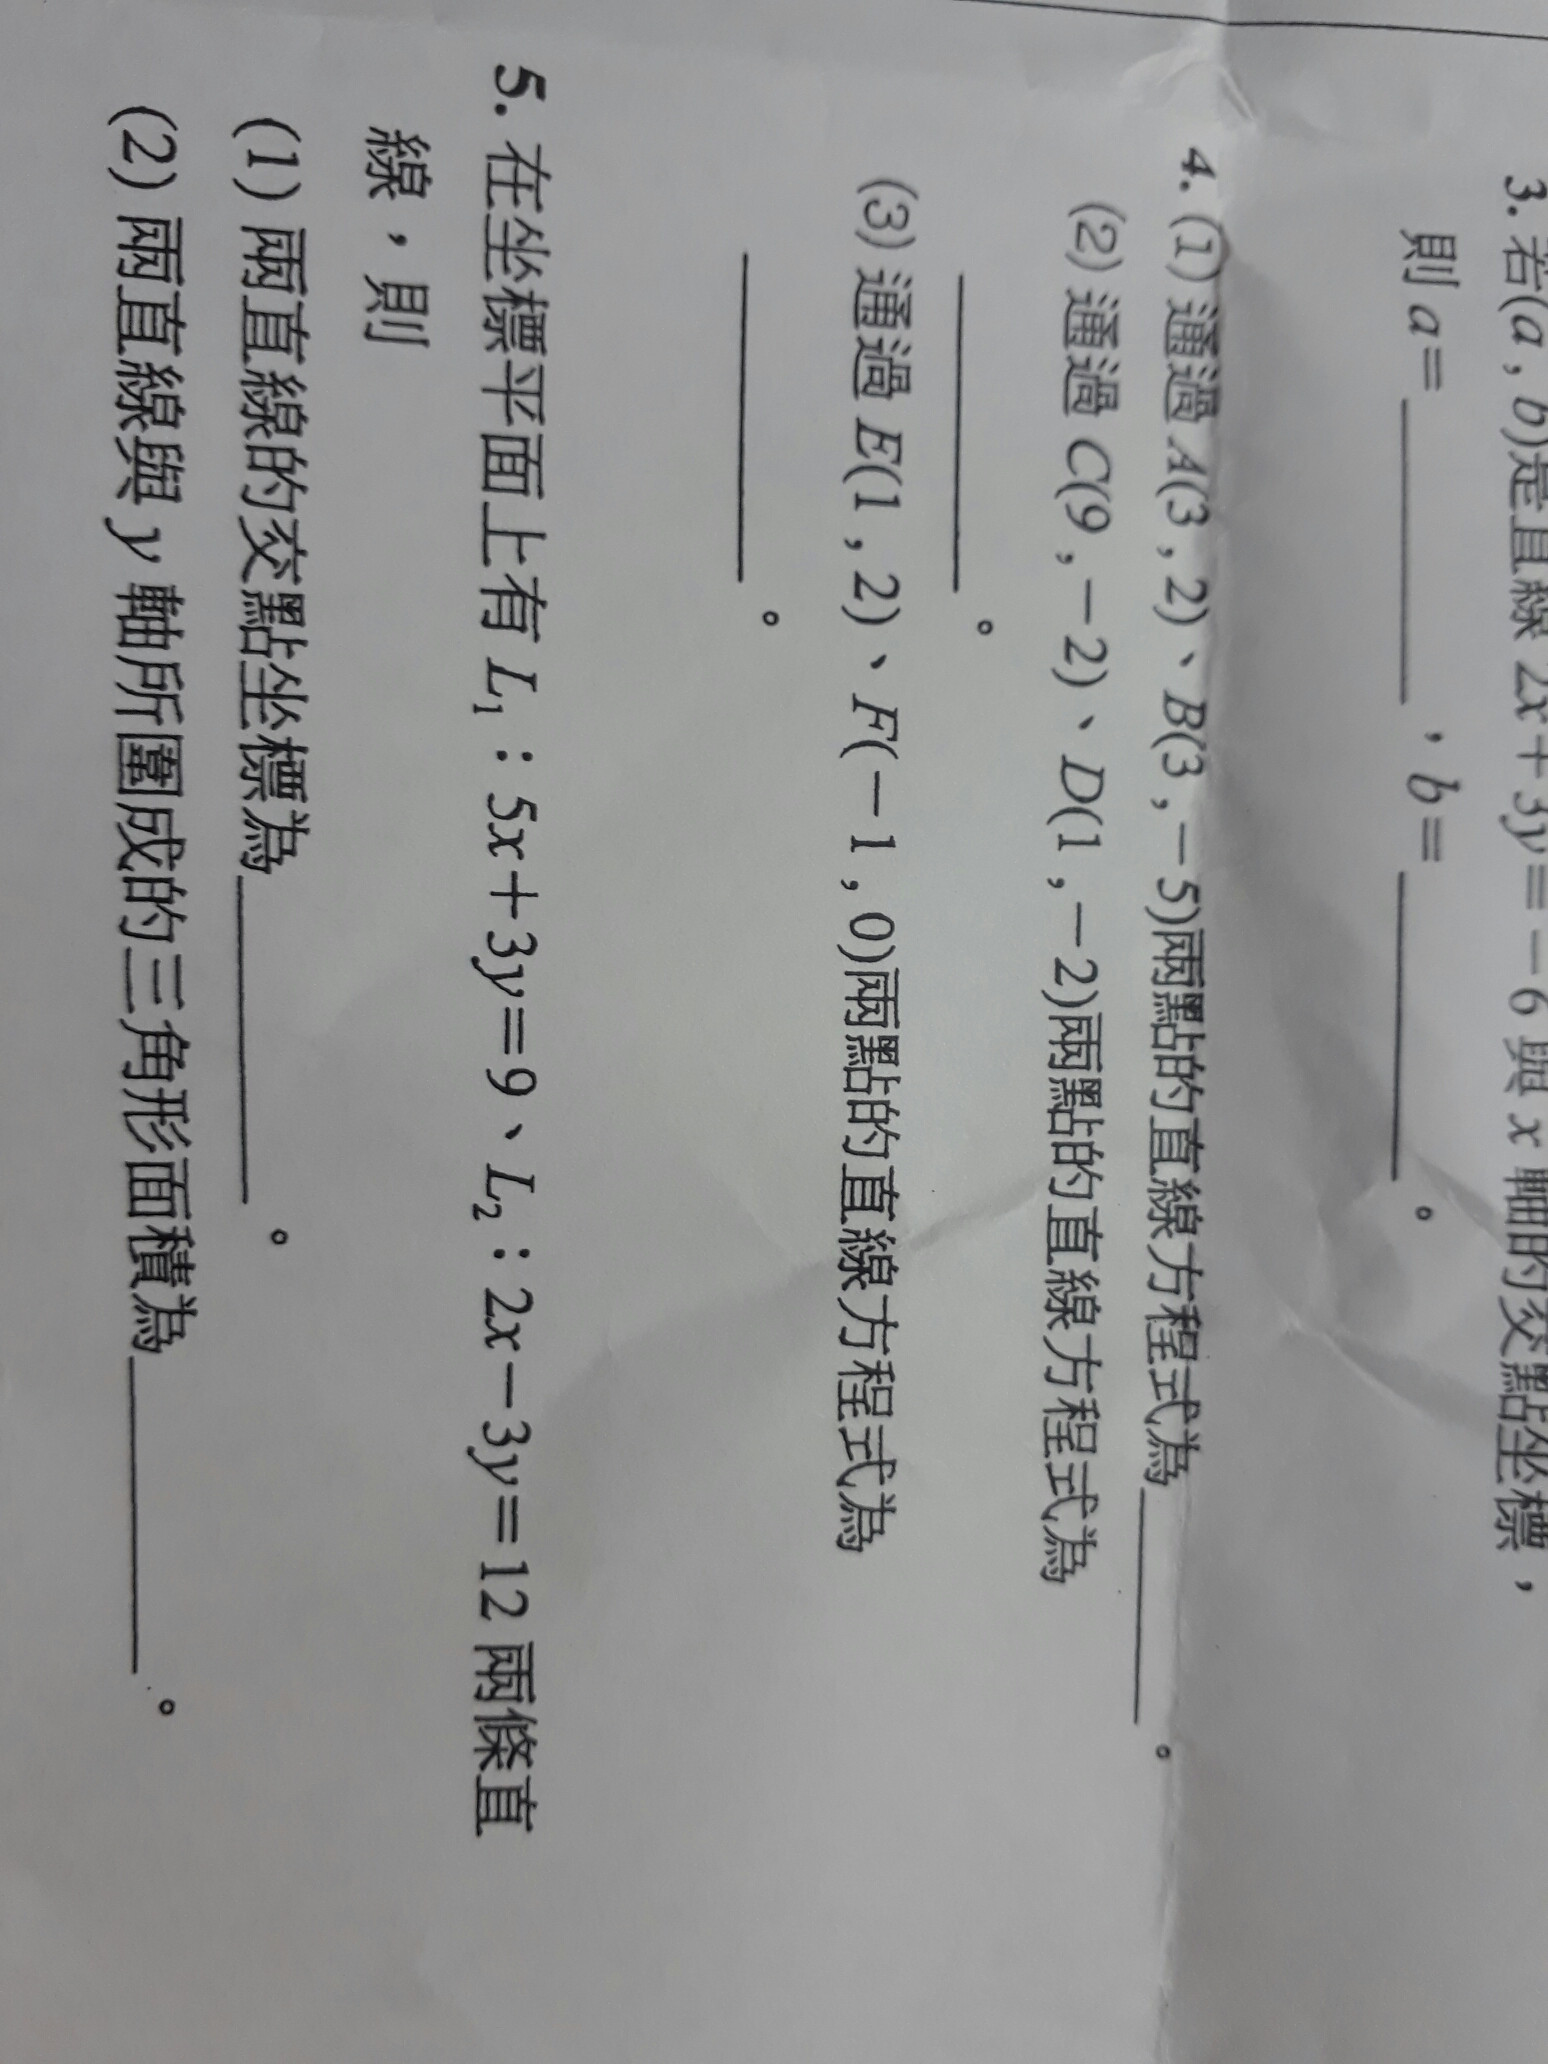 3. 若(a , b)是直線 2x＋3y＝－6 與 x 軸的交點坐標，
則 a＝________，b＝________。
4. (1) 通過 A(3 , 2)、B(3 , －5)兩點的直線方程式為________。
(2) 通過 C(9 , －2)、D(1 , －2)兩點的直線方程式為
________。
(3) 通過 E(1 , 2)、F(－1 , 0)兩點的直線方程式為
________。
5. 在坐標平面上有 L₁：5x＋3y＝9、L₂：2x－3y＝12 兩條直
線，則
(1) 兩直線的交點坐標為________。
(2) 兩直線與 y 軸所圍成的三角形面積為________。